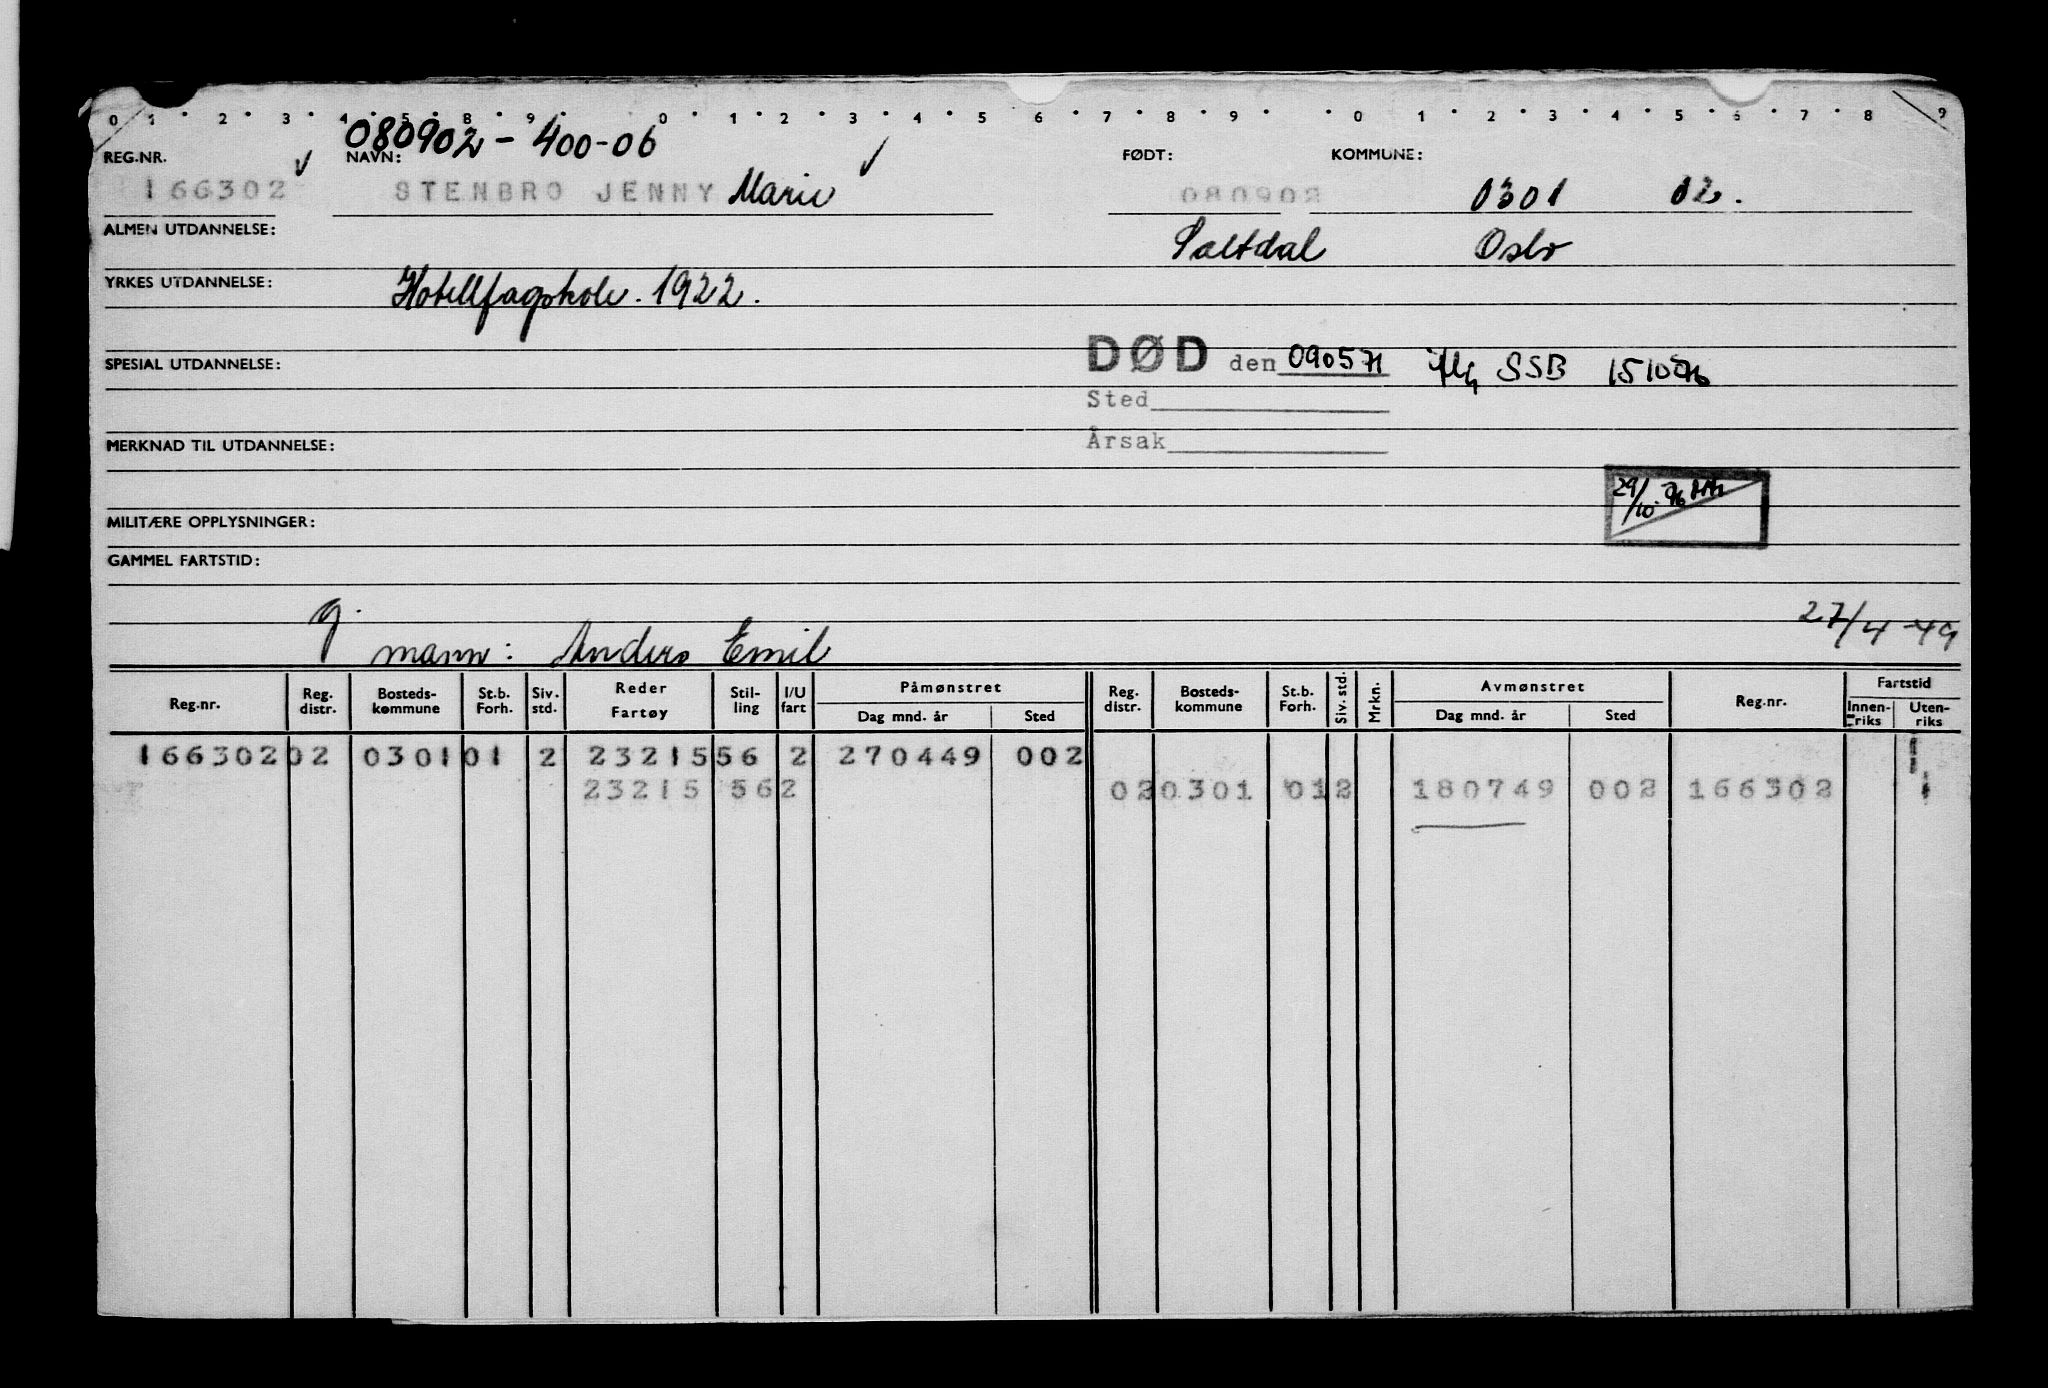 0 1 2 3 4 5 8 9 0 1 2 3 4 5 6 7 8 9 0 1 2 3 4 5 6 7 8 9
080902-400-06
REG.NR. ✓ NAVN: ✓ FØDT: KOMMUNE:
166302 STENBRO JENNY Marie 080902 0301 02.
ALMEN UTDANNELSE: Saltdal Oslo
YRKES UTDANNELSE: Hotellfagskole. 1922.
DØD den 090571 iflg SSB 151076
SPESIAL UTDANNELSE:
Sted
Årsak
MERKNAD TIL UTDANNELSE:
29/10.76
MILITÆRE OPPLYSNINGER:
GAMMEL FARTSTID:
g. 27/4-49
mann: Anders Emil
Reg.nr. Reg. distr. Bosteds-kommune St.b. Forh. Siv. std. Reder Fartøy Stil-ling I/U fart Påmønstret Dag mnd. år Sted Reg. distr. Bosteds-kommune St.b. Forh. Siv. std. Mrkn. Avmønstret Dag mnd. år Sted Reg.nr. Fartstid Innen-riks Uten-riks
166302 02 0301 01 2 23215 56 2 270449 002
23215 56 2 02 0301 01 2 180749 002 166302